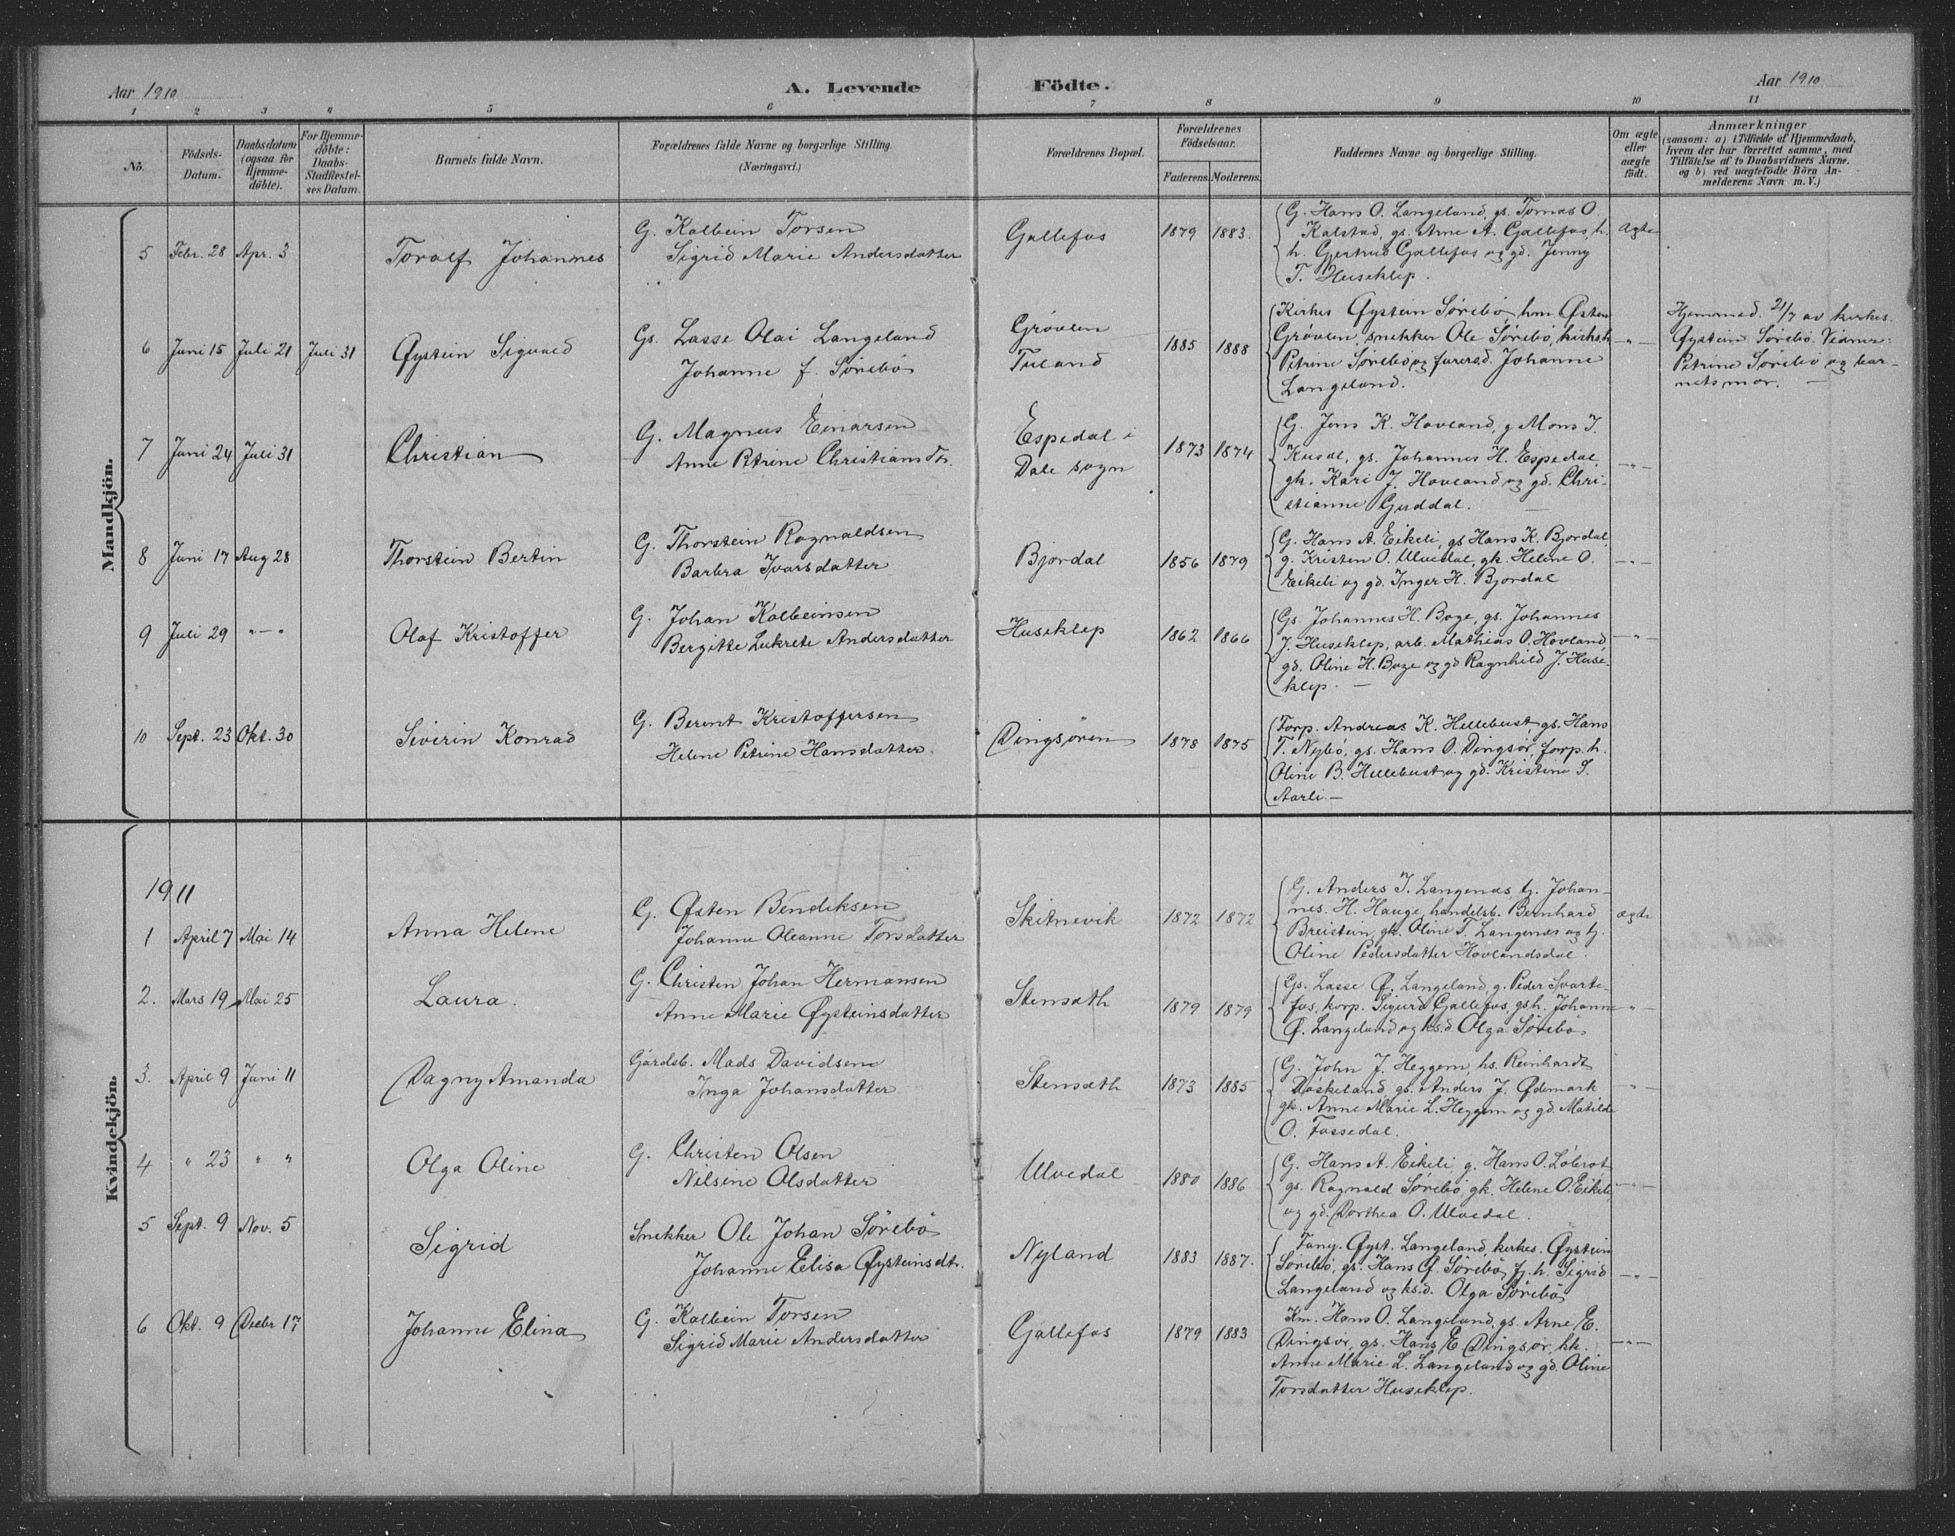 Aar 1910
A. Levende Födte.
Aar 1910
1 2 3 4 5 6 7 8 9 10 11
No.
Födsels-Datum.
Daabsdatum (ogsaa for Hjemme-döbte).
For Hjemme-döbte: Daabs-Stadfæstel-ses Datum.
Barnets fulde Navn.
Forældrenes fulde Navne og borgerlige Stilling. (Næringsvei.)
Forældrenes Bopæl.
Forældrenes Födselsaar.
Faderens. Moderens.
Faddernes Navne og borgerlige Stilling.
Om ægte eller uægte födt.
Anmærkninger
(saasom: a) i Tilfælde af Hjemmedaab, hvem der har forrettet samme, med Tilföielse af to Daabsvidners Navne. og b) ved uægtefödte Börn An-melderens Navn m. V.)
Mandkjön.
5 Febr. 28 Apr. 3
Toralf Johannes
G. Kolbein Torsen
Sigrid Marie Andersdatter
Gallefos
1879 1883.
G. Hans O. Langeland, gs. Tomas O
Kalstad, gs. Arne A. Gallefos, h.
h. Gjertrud Gallefos og gd. Jenny
T. Huseklep.
Ægte
6 Juni 15 Juli 21 Juli 31
Øystein Sigvald
Gs. Lasse Olai Langeland
Johanne f. Sørebø
Grøven
1885 1888
Kirkes Øystein Sørebø, hm. Østen
Grøven, snekker Ole Sørebø, kirksh
Petrine Sørebø og furersd. Johanne
Langeland.
-"-
Hjemmed. 21/7 av kirkes.
Øystein Sørebø. Vidner:
Petrine Sørebø og bar-
nets mor. —
7 Juni 24 Juli 31
Christian
G. Magnus Einarsen
Anne Petrine Christiansdtr.
Espedal i
Dale sogn
1873 1874
G. Jens K. Hovland, g Mons J.
gs. Johannes H. Espedal,
gh. Kari J. Hovland og gd. Chri-
stianne Guddal. —
-"-
8 Juni 17 Aug 28
Thorstein Bertin
G. Thorstein Ragnaldsen
Barbra Ivarsdatter
Bjordal
1856 1879
G. Hans A. Eikeli, gs Hans K. Bjordal,
g. Kristen O. Ulvedal, gk. Helene O.
Eikeli og gd. Inger H. Bjordal
-"-
9 Juli 29 "—"
Olaf Kristoffer
G. Johan Kolbeinsen
Bergitte Lukrete Andersdatter
Huseklep
1862 1866
Gs. Johannes H. Boge, gs. Johannes
J. Huseklep, arb. Mathias O. Hovland,
gd. Oline H. Boge og gd Ragnhild J. Huse-
klep. —
-"-
10 Sept. 23 Okt. 30
Siverin Konrad
G. Berent Kristoffersen
Helene Petrine Hansdatter.
Dingsøren
1878 1875
Forp. Andreas K. Hellebust gs. Hans
T. Nybø, gs. Hans O. Dingsør, forp. h.
Oline B. Hellebust og gd. Kristine S.
Aarli —
Kvindekjön.
1911
1 April 7 Mai 14
Anna Helene
G. Østen Bendiksen
Johanne Oleanne Torsdatter
Skitnevik
1872 1872
G. Anders T. Langenæs, tj. Johan-
nes. H. Hauge, handelsb. Bernhard
Breistein, gk. Oline T. Langenæs og tj.
Oline Pedersdatter Hovlandsdal.
ægte
2. Mars 19 Mai 25
Laura.
G. Christen Johan Hermansen
Anne Marie Øysteinsdatter
Stensæth
1879 1879
Gs. Lasse Ø. Langeland, g. Peder Svarte-
fos, korp. Sigurd Gallefos, gsh. Johanne
Ø. Langeland og ks.d. Olga Sørebø
"-
3. April 9 Juni 11
Dagny Amanda
Gårdsb. Mads Davidsen
Inga Johansdatter
Stensæth
1873 1885
G. John J. Heggem, hs. Reinhardt
Døskeland gs. Anders J. Ødemark
gk. Anne Marie L. Heggem og gd. Matilde
O. Fossedal.
"-
4 " 23 " "
Olga Oline
G. Christen Olsen
Nilsine Olsdatter
Ulvedal
1880 1886
G. Hans A. Eikeli, g. Hans O. Løbrot
gs. Ragnald Sørebø, gk. Helene O. Eikeli
og gd. Dorthea O. Ulvedal.
-"-
5 Sept. 9 Nov. 5
Sigrid
Snekker Ole Johan Sørebø
Johanne Elisa Øysteinsdtr.
Nyland
1883 1887.
Øyst. Langeland, kirkes. Øystein
Sørebø, gs. Hans O. Sørebø, h. Sigrid
Langeland og ks.d. Olga Sørebø
-"-
6 Okt. 9 Decbr 17
Johanne Elina
G. Kolbein Torsen
Sigrid Marie Andersdatter
Gallefos
1879 1883
Km. Hans O. Langeland, gs. Arne E.
Dingsør, gs. Hans E Dingsør, kk.
Anne Marie L. Langeland og gd. Oline
Torsdatter Huseklep.
-"-